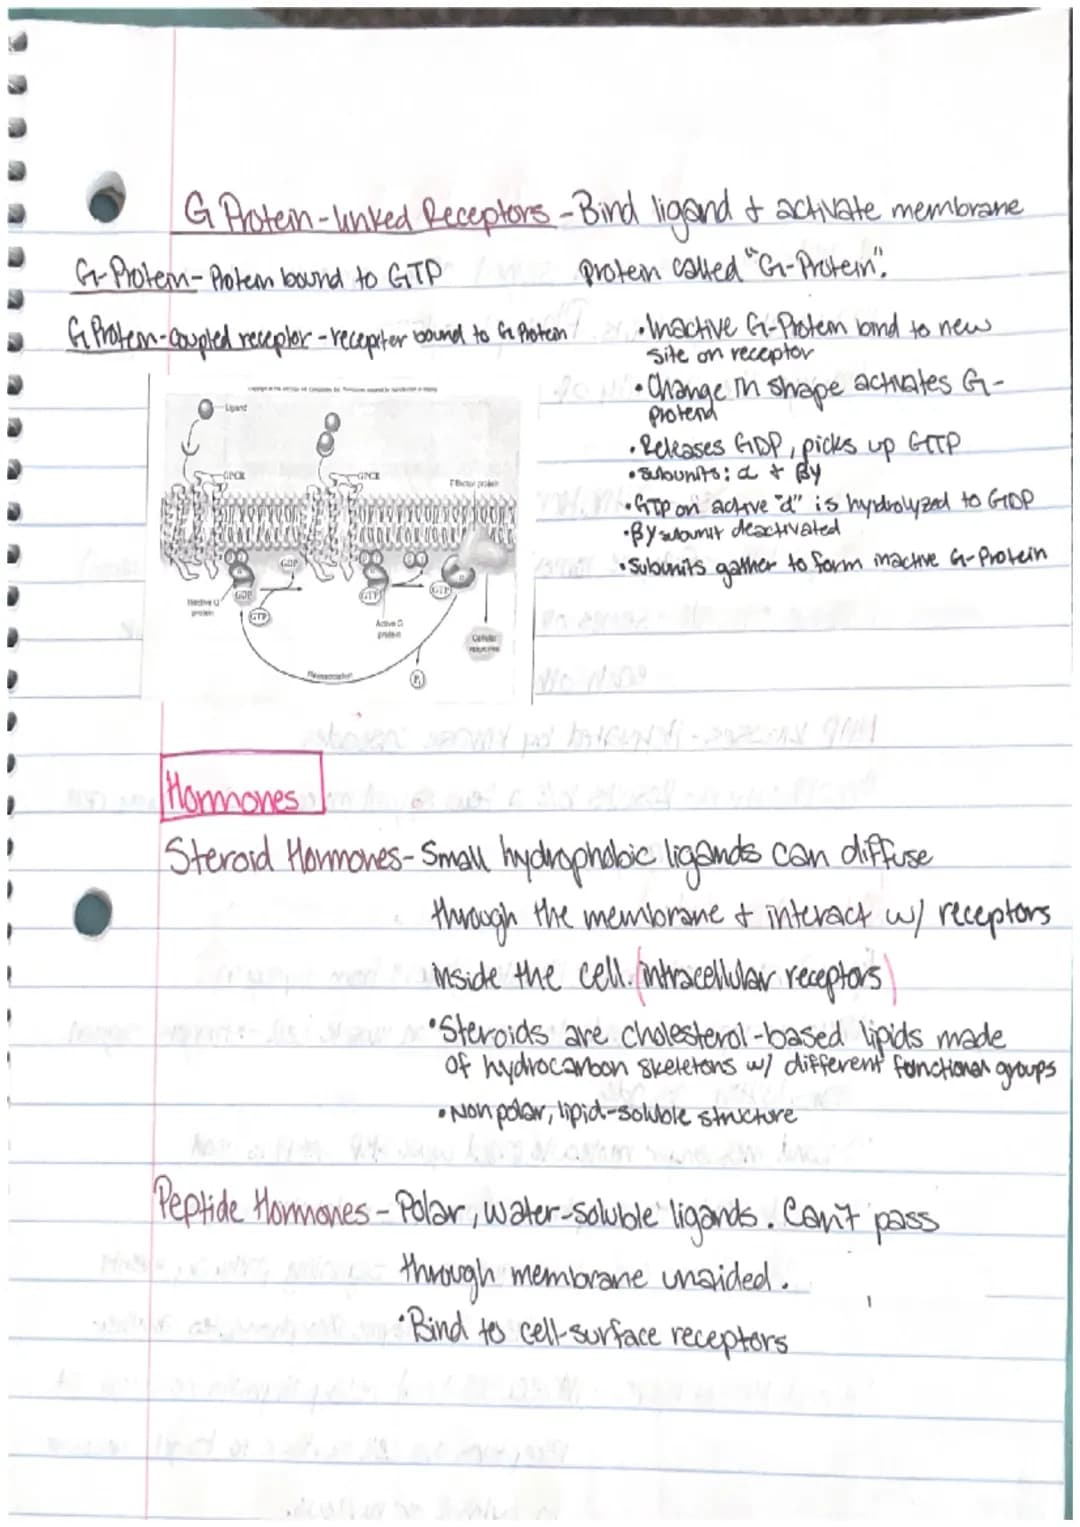 G Protein-linked Receptors - Bind ligand + activate membrane
protein called "G-Protein".
G-Protein - Protein bound to GTP
G Protein-Coupled receptor - receptor bound to G Protein
• Inactive G-Protein bind to new
site on receptor
• Change in shape activates G-
protein
• Releases GDP, picks up GTP
• subunits: α + βγ
• GTP on active "α" is hydrolyzed to GDP
• βγ subunit deactivated
• Subunits gather to form inactive G-Protein
Ligand
GPCR
GPCR
Effector protein
GDP
GDP
GTP
GTP
GTP
Inactive G
protein
Active G
protein
Cellular
responses
Reassociation
Pi
Hormones
Steroid Hormones - Small hydrophobic ligands can diffuse
through the membrane + interact w/ receptors
inside the cell. (intracellular receptors)
• Steroids are cholesterol-based lipids made
of hydrocarbon skeletons w/ different functional groups
• Nonpolar, lipid-soluble structure
Peptide Hormones - Polar, water-soluble ligands. Can't pass
through membrane unaided.
• Bind to cell-surface receptors